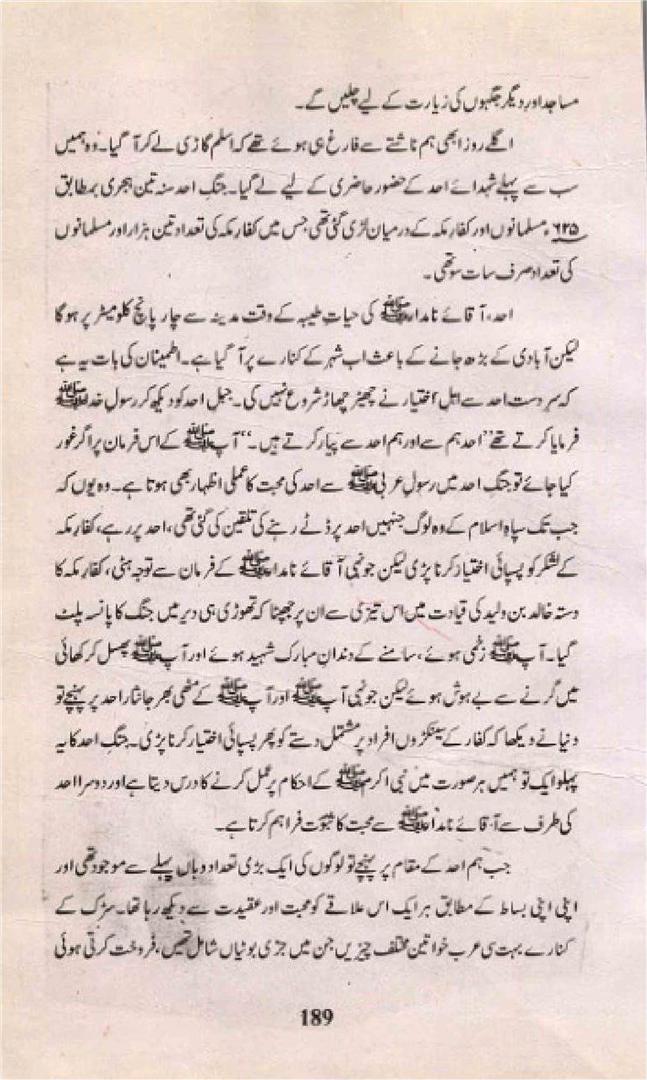 مساجد اور دیگر جگہوں کی زیارت کے لیے چلیں گے۔
اگلے روز ابھی ہم ناشتے سے فارغ ہی ہوئے تھے کہ اسلم گاڑی لے کر آ گیا۔ وہ ہمیں
سب سے پہلے شہدائے احد کے حضور حاضری کے لیے لے گیا۔ جنگِ احد سنہ تین ہجری بمطابق
۶۲۵ء مسلمانوں اور کفارِ مکہ کے درمیان لڑی گئی تھی جس میں کفارِ مکہ کی تعداد تین ہزار اور مسلمانوں
کی تعداد صرف سات سو تھی۔
احد، آقائے نامدار ﷺ کی حیاتِ طیبہ کے وقت مدینہ سے چار پانچ کلومیٹر پر ہو گا
لیکن آبادی کے بڑھ جانے کے باعث اب شہر کے کنارے پر آ گیا ہے۔ اطمینان کی بات یہ ہے
کہ سرِدست احد سے اہلِ اختیار نے چھیڑ چھاڑ شروع نہیں کی۔ جبلِ احد کو دیکھ کر رسولِ خدا ﷺ
فرمایا کرتے تھے "احد ہم سے اور ہم احد سے پیار کرتے ہیں۔" آپ ﷺ کے اس فرمان پر اگر غور
کیا جائے تو جنگِ احد میں رسولِ عربی ﷺ سے احد کی محبت کا عملی اظہار بھی ہوتا ہے۔ وہ یوں کہ
جب تک سپاہِ اسلام کے وہ لوگ جنہیں احد پر ڈٹے رہنے کی تلقین کی گئی تھی، احد پر رہے، کفارِ مکہ
کے لشکر کو پسپائی اختیار کرنا پڑی لیکن جونہی آقائے نامدار ﷺ کے فرمان سے توجہ ہٹی، کفارِ مکہ کا
دستہ خالد بن ولید کی قیادت میں اس تیزی سے ان پر جھپٹا کہ تھوڑی ہی دیر میں جنگ کا پانسہ پلٹ
گیا۔ آپ ﷺ زخمی ہوئے، سامنے کے دندانِ مبارک شہید ہوئے اور آپ ﷺ پھسل کر کھائی
میں گرنے سے بے ہوش ہوئے لیکن جونہی آپ ﷺ اور آپ ﷺ کے مٹھی بھر جانثار احد پر پہنچے تو
دنیا نے دیکھا کہ کفار کے سینکڑوں افراد پر مشتمل دستے کو پھر پسپائی اختیار کرنا پڑی۔ جنگِ احد کا یہ
پہلو ایک تو ہمیں ہر صورت میں نبی اکرم ﷺ کے احکام پر عمل کرنے کا درس دیتا ہے اور دوسرا احد
کی طرف سے آقائے نامدار ﷺ سے محبت کا ثبوت فراہم کرتا ہے۔
جب ہم احد کے مقام پر پہنچے تو لوگوں کی ایک بڑی تعداد وہاں پہلے سے موجود تھی اور
اپنی اپنی بساط کے مطابق ہر ایک اس علاقے کو محبت اور عقیدت سے دیکھ رہا تھا۔ سڑک کے
کنارے بہت سی عرب خواتین مختلف چیزیں جن میں جڑی بوٹیاں شامل تھیں، فروخت کرتی ہوئی
189